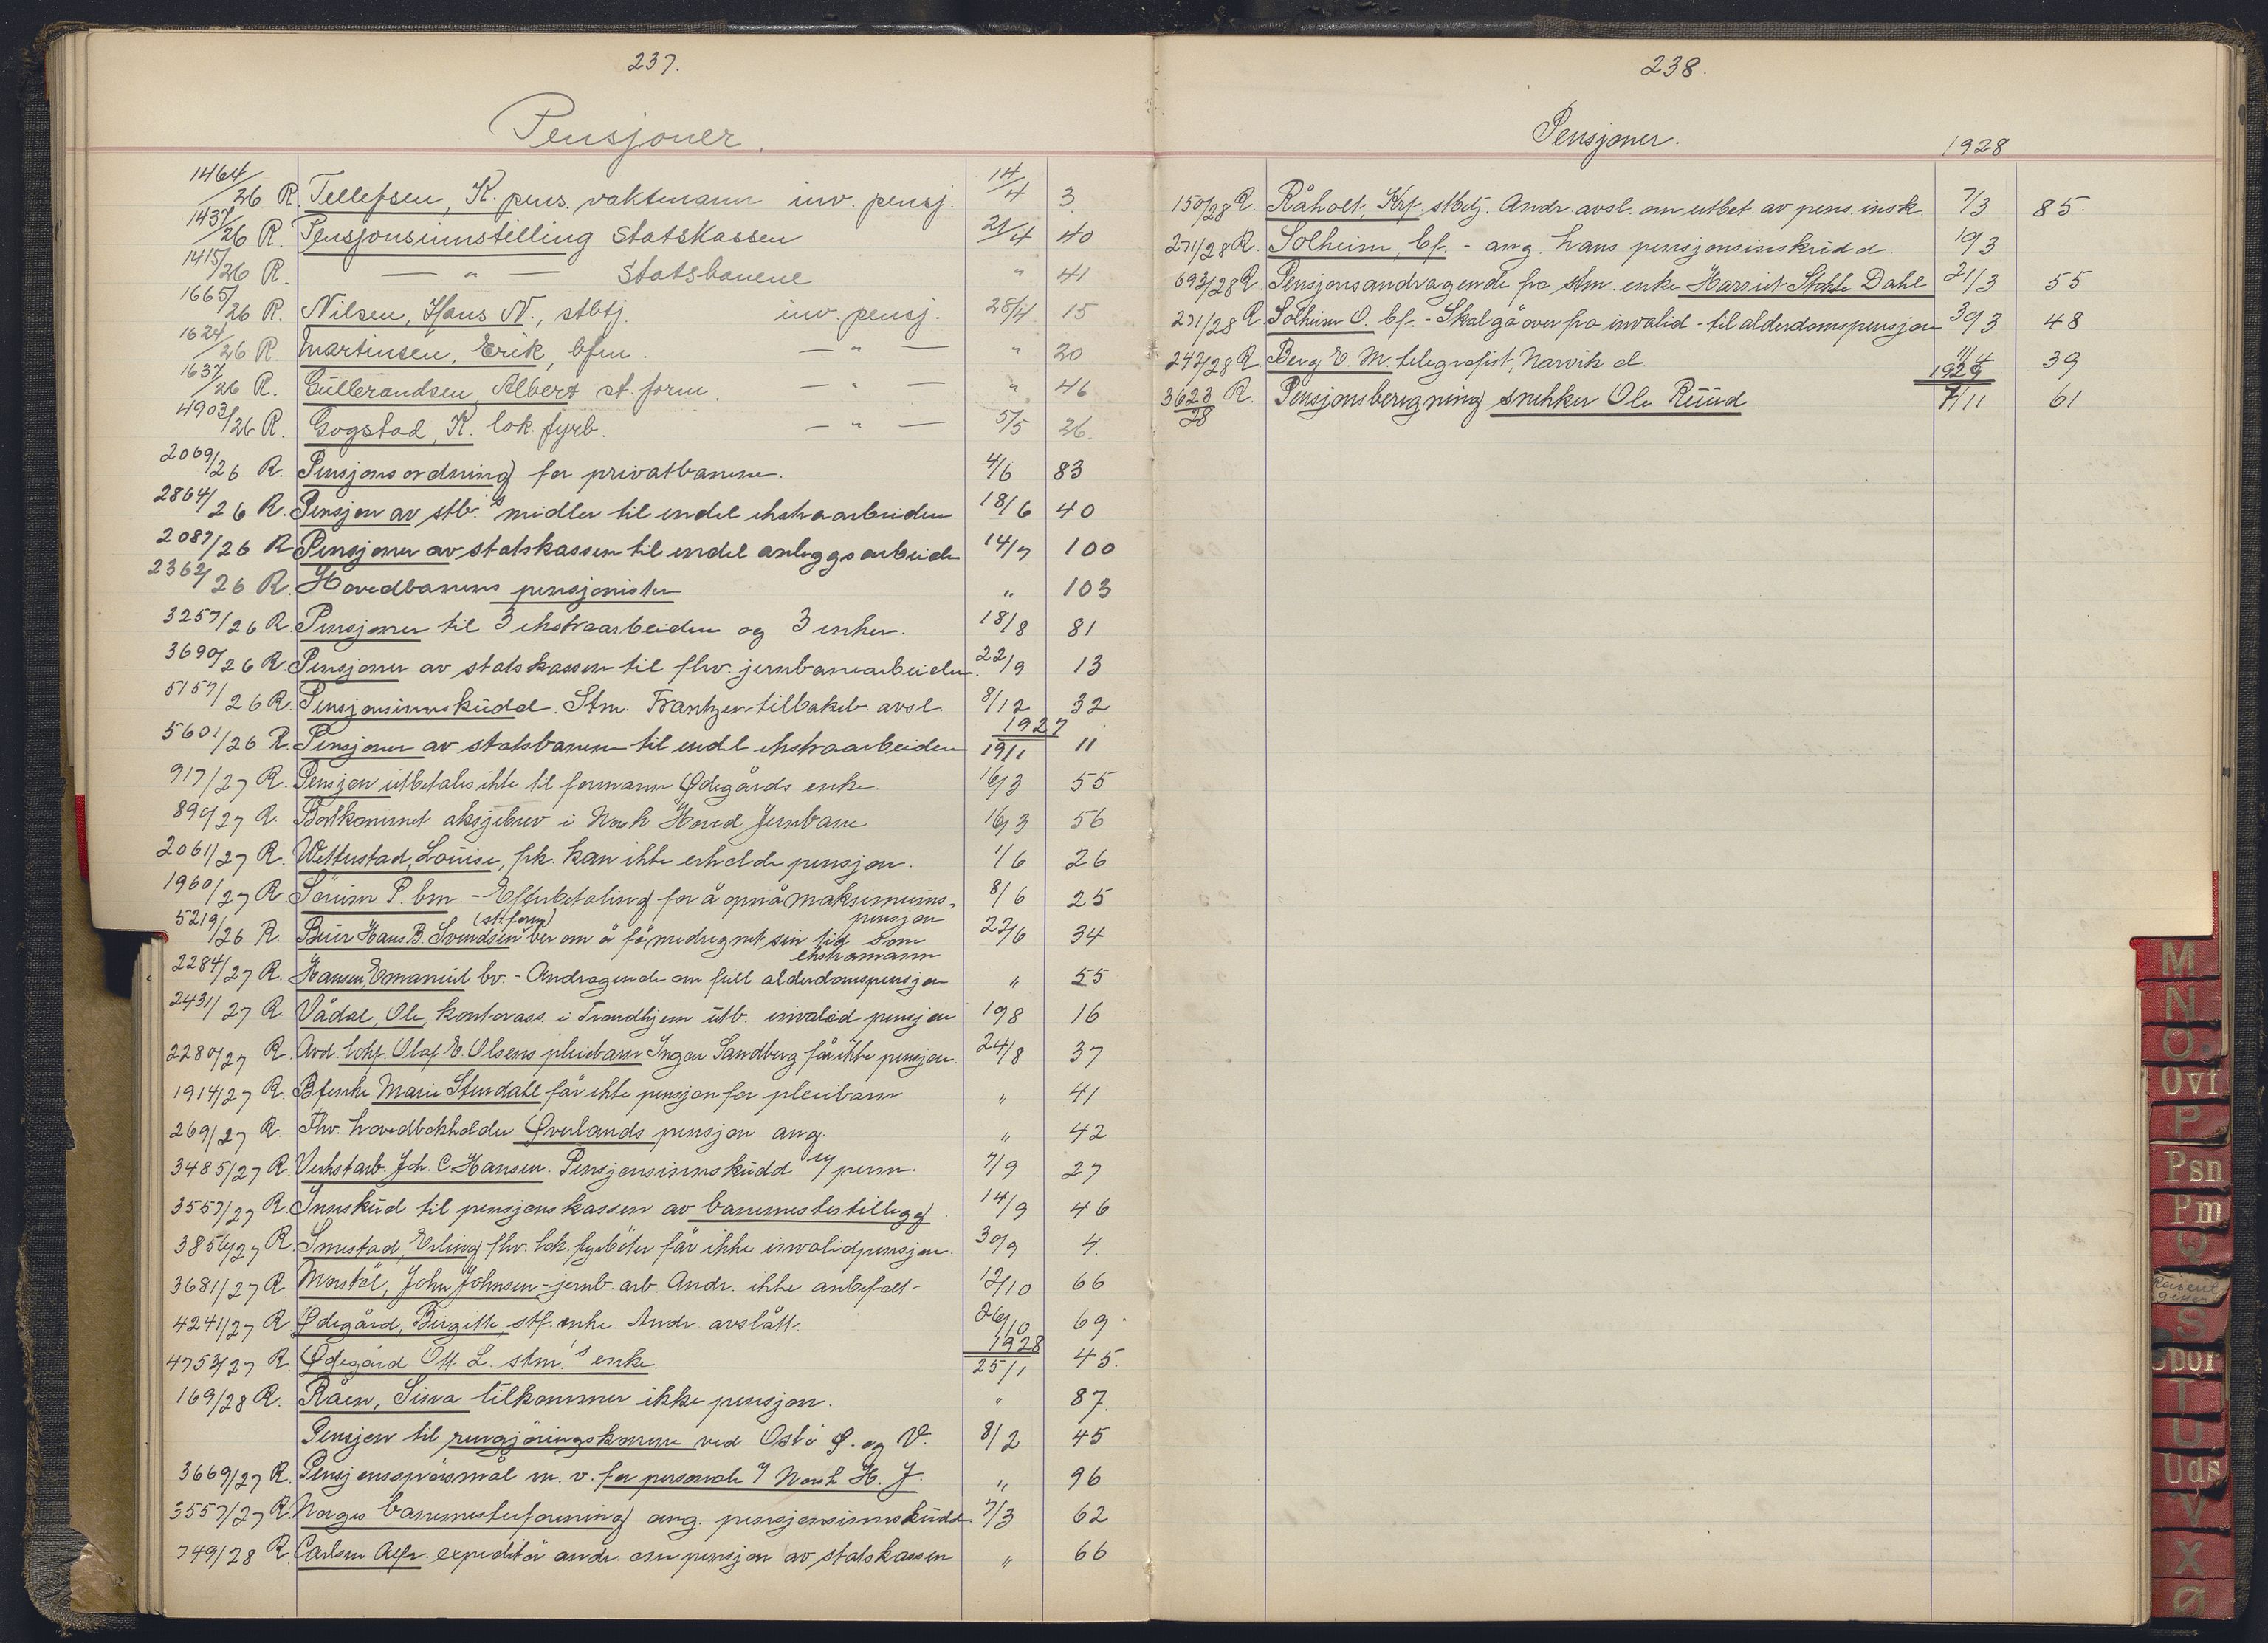 237.
Pensjoner.
1464/26 R. Tellefsen, K. pens. vaktmann inv. pensj. 14/4 3
1437/26 R. Pensjonsinnstilling Statskassen 21/4 40
1415/26 R. — " — Statsbanene " 41
1665/26 R. Nilsen, Hans N., stbtj. inv. pensj. 28/4 15
1624/26 R. Martinsen, Erik, bfm. — " — " 20
1637/26 R. Gullerandsen, Albert st. form. — " — " 46
4903/26 R. Gogstad, K. lok. fyrb. — " — 5/5 26.
2069/26 R. Pensjonsordning for privatbanene. 4/6 83
2864/26 R. Pensjon av stb.'s midler til endel ekstraarbeidere 18/6 40
2087/26 R. Pensjoner av statskassen til endel anleggsarbeide 14/7 100
2362/26 R. Hovedbanens pensjonister " 103
3257/26 R. Pensjoner til 3 ekstraarbeidere og 3 enker. 18/8 81
3690/26 R. Pensjoner av statskassen til fhv. jernbanearbeidere. 22/9 13
5157/26 R. Pensjonsinnskudd. Stm. Frantzen tilbakeb. avsl. 8/12 32
1927
5601/26 R. Pensjoner av statsbanene til endel ekstraarbeidere 19/1 11
917/27 R. Pensjon utbetales ikke til formann Ødegårds enke. 16/3 55
890/27 R. Bortkommet aksjebrev i Norsk Hoved Jernbane 16/3 56
2061/27 R. Wettestad, Louise, frk. kan ikke erholde pensjon. 1/6 26
1960/27 R. Sørum P. bm. - Efterbetaling for å opnå maksimums- 8/6 25
pensjon.
5219/26 R. Buer Hans B. Svendsen (st. form) ber om å få medregnet sin tid som 22/6 34
ekstramann
2284/27 R. Hansen, Emanuel bv. - Andragende om full alderdomspensjon " 55
2431/27 R. Vådal, Ole, kontorass. i Trondhjem utb. invalid pensjon 19/8 16
2280/27 R. Avd. lokf. Olaf E. Olsens pleiebarn Ingar Sandberg får ikke pensjon. 24/8 37
1914/27 R. Bfenke Marie Stendahl får ikke pensjon for pleiebarn " 41
269/27 R. Fhv. hovedbokholder Øverlands pensjon ang. " 42
3485/27 R. Verkstarb. Joh. C. Hansen. Pensjonsinnskudd u/ perm. 7/9 27
3557/27 R. Innskud til pensjonskassen av banemestertillegg. 14/9 46
3856/27 R. Smestad, Erling fhv. lok. fyrbøter får ikke invalidpensjon. 30/9 4.
3681/27 R. Morstøl, John Johnsen - jernb. arb. Andr. ikke anbefalt - 12/10 66
4241/27 R. Ødegård, Birgitte, stf. enke. Andr. avslått. 26/10 69
1928
4753/27 R. Ødegård Ott. L. stm.'s enke. 25/1 45.
169/28 R. Råen, Sina tilkommer ikke pensjon. " 87.
Pensjon til rengjøringskonene ved Oslo Ø. og V. 8/2 45
3669/27 R. Pensjonsspørsmål m. v. for personale v/ Norsk H. J. " 96
3557/27 R. Norges banemesterforening ang. pensjonsinnskudd 7/3 62
749/28 R. Carlsen Alfr. expeditør andr. om pensjon av statskassen " 66
238.
Pensjoner. 1928
150/28 R. Råholt, Krf. stbtj. Andr. avsl. om utbet. av pens. insk. 7/3 85.
231/28 R. Solheim, bf. - ang. hans pensjonsinskudd. 19/3
693/28 R. Pensjonsandragende fra stm. enke Harriet Stokke Dahl 21/3 55
231/28 R. Solheim O. bf. - Skal gå over fra invalid - til alderdomspensjon 30/3 48
242/28 R. Berg E. M. telegrafist, Narvik d. 11/4 39
1929
3623/28 R. Pensjonsberegning snekker Ole Ruud 7/11 61
M
N
O
Ovf
P
Psn
Pm
Q
S
Spor
T
U
Uds
V
X
Ø